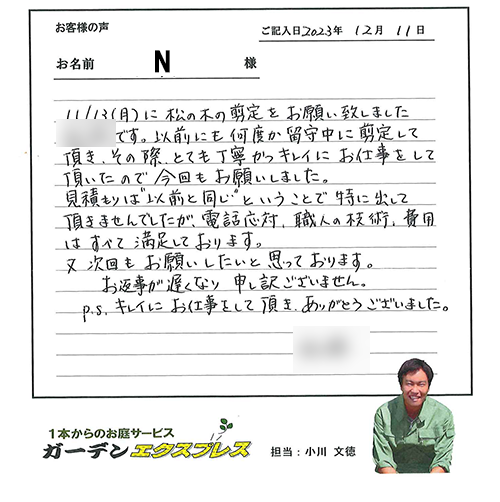 お客様の声
ご記入日2023年 12月 11日
お名前 N 様
11/13(月)に 松の木の剪定を お願い致しました
です。以前にも 何度か 留守中に 剪定して
頂き、その際、とても丁寧かつキレイに お仕事をして
頂いたので 今回も お願いしました。
見積もりは“以前と同じ”と いうことで 特に出して
頂きませんでしたが、電話応対、職人の技術、費用
は すべて 満足しております。
又 次回も お願いしたいと 思っております。
お返事が遅くなり 申し訳ございません。
p.s. キレイに お仕事をして 頂き、ありがとうございました。
1本からのお庭サービス
ガーデンエクスプレス
担当：小川 文徳